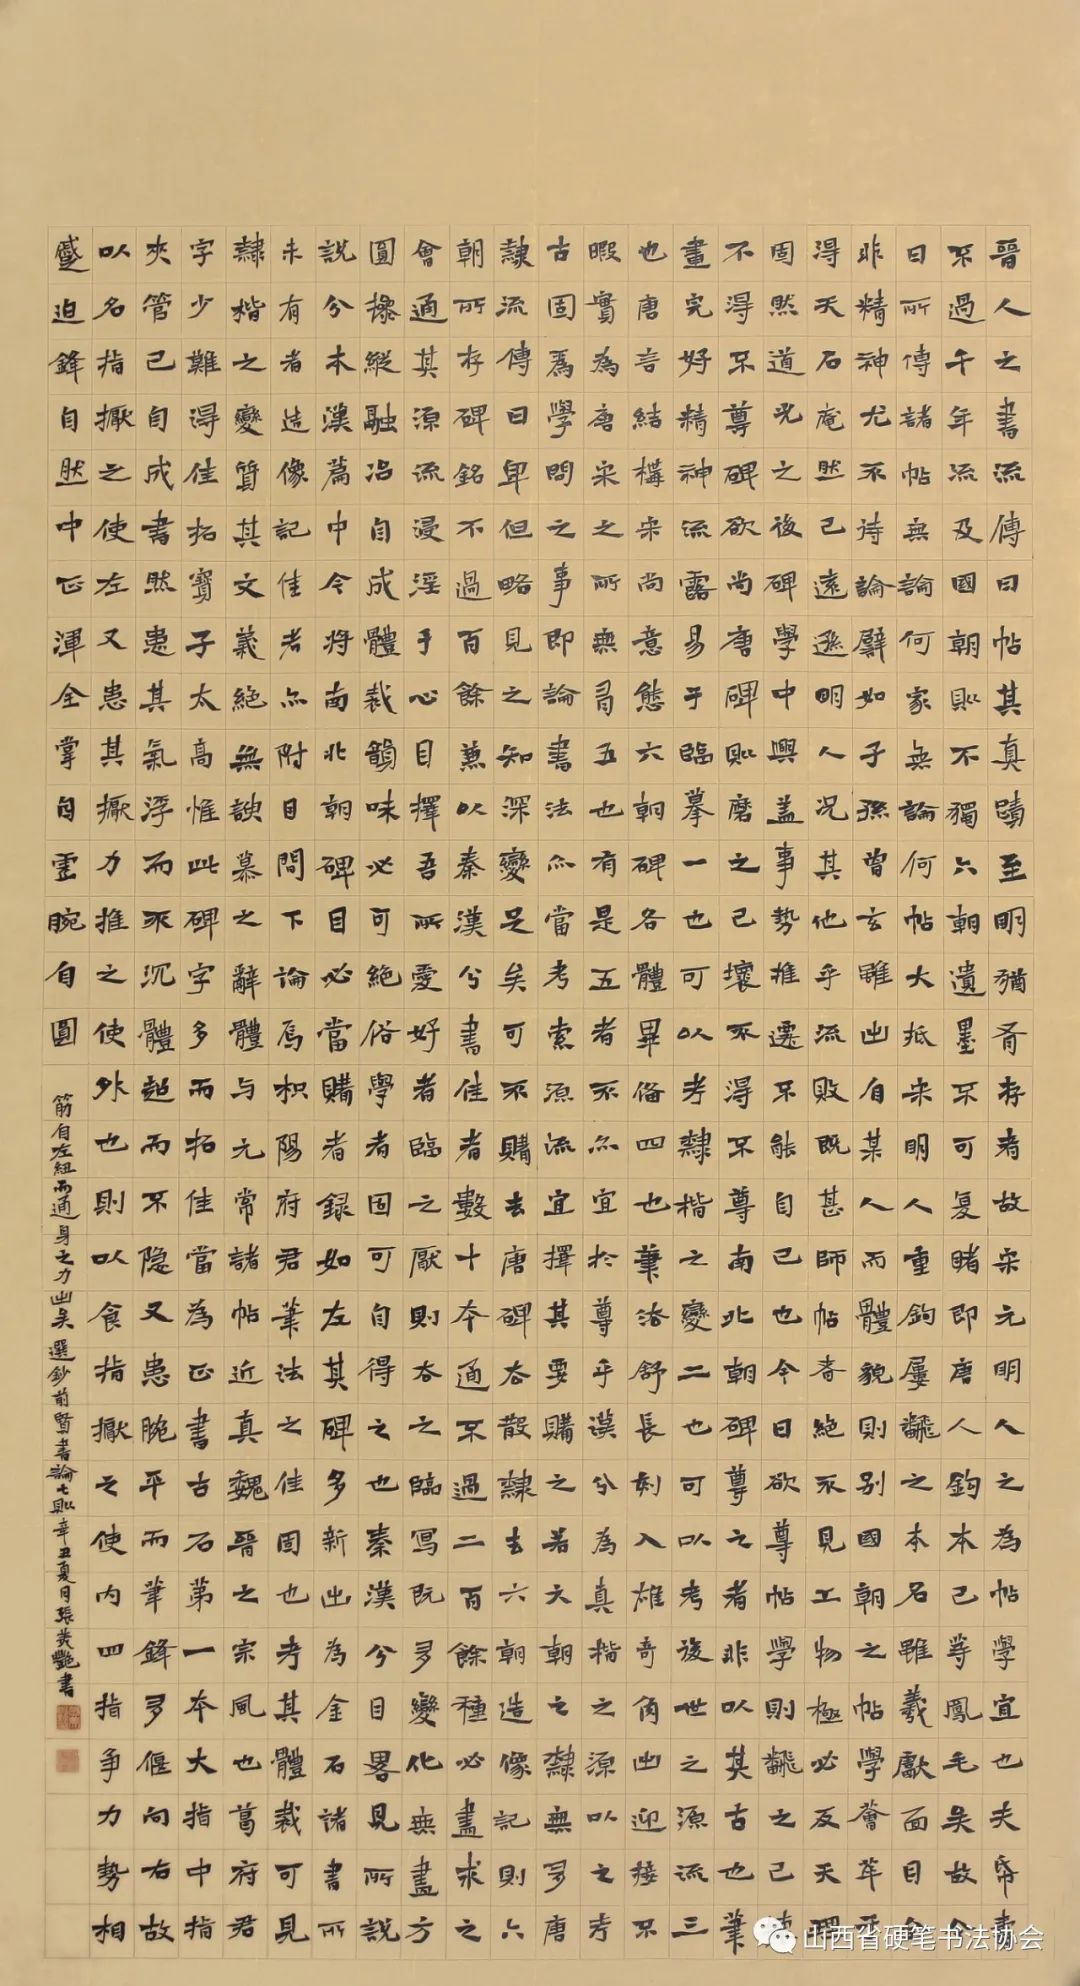 晉人之書流傳曰帖其真蹟至明猶有存者故宋元明人之為帖學宜也夫紙壽
不過千年流及國朝則不獨六朝遺墨不可復睹即唐人鉤本已等鳳毛矣故今
日所傳諸帖無論何家無論何帖大抵宋明人重鉤屢翻之本名雖羲獻面目全
非精神尤不待論譬如子孫曾玄雖出自某人而體貌則別國朝之帖學薈萃
得天石庵然已遠遜明人況其他乎流敗既甚師帖者絕不見工物極必反天理
固然道光之後碑學中興蓋事勢推遷不能自已也今日欲尊帖學則翻之已壞
不得不尊碑欲尚唐碑則磨之已壞不得不尊南北朝碑尊之者非以其古也筆
畫完好精神流露易于臨摹一也可以考隸楷之變二也可以考後世之源流三
也唐言結構宋尚意態六朝碑各體畢備四也筆法舒長刻入雄奇角出迎接不
暇實為唐宋之所無有五也有是五者不亦宜於尊乎漢分為真楷之源以之考
古固為學問之事即論書法亦當考索源流宜擇其要購之若六朝之隸無多唐
隸流傳日卑但略見之知深變足矣可不購去唐碑去散隸去六朝造像記則六
朝所存碑銘不過百餘兼以秦漢分書佳者數十本通不過二百餘種必盡求之
會通其源流浸淫于心目擇吾所愛好者臨之厭則去之臨寫既多變化無盡方
圓操縱融冶自成體裁韻味必可絕俗學者固可自得之也秦漢分目畧見所說
說分本漢篇中今將南北朝碑目必當購者錄如左其碑多新出為金石諸書所
未有者造像記佳者亦附目間下論焉枳陽府君筆法之佳固也考其體裁可見
隸楷之變質其文義絕無諛慕之辭體与元常諸帖近真魏晉之宗風也葛府君
字少難得佳拓寶子太高惟此碑字多而拓佳當為正書古石第一本大指中指
夾管已自成書然患其氣浮而不沉體超而不隐又患腕平而筆鋒多偃向右故
以名指擫之使左又患其擫力推之使外也則以食指擫之使内四指爭力勢相
蹙迫鋒自然中正渾全掌自虛腕自圓
筋自左紐而通身之力出矣 選鈔前賢書論七則辛丑夏日張美艷書
山西省硬笔书法协会